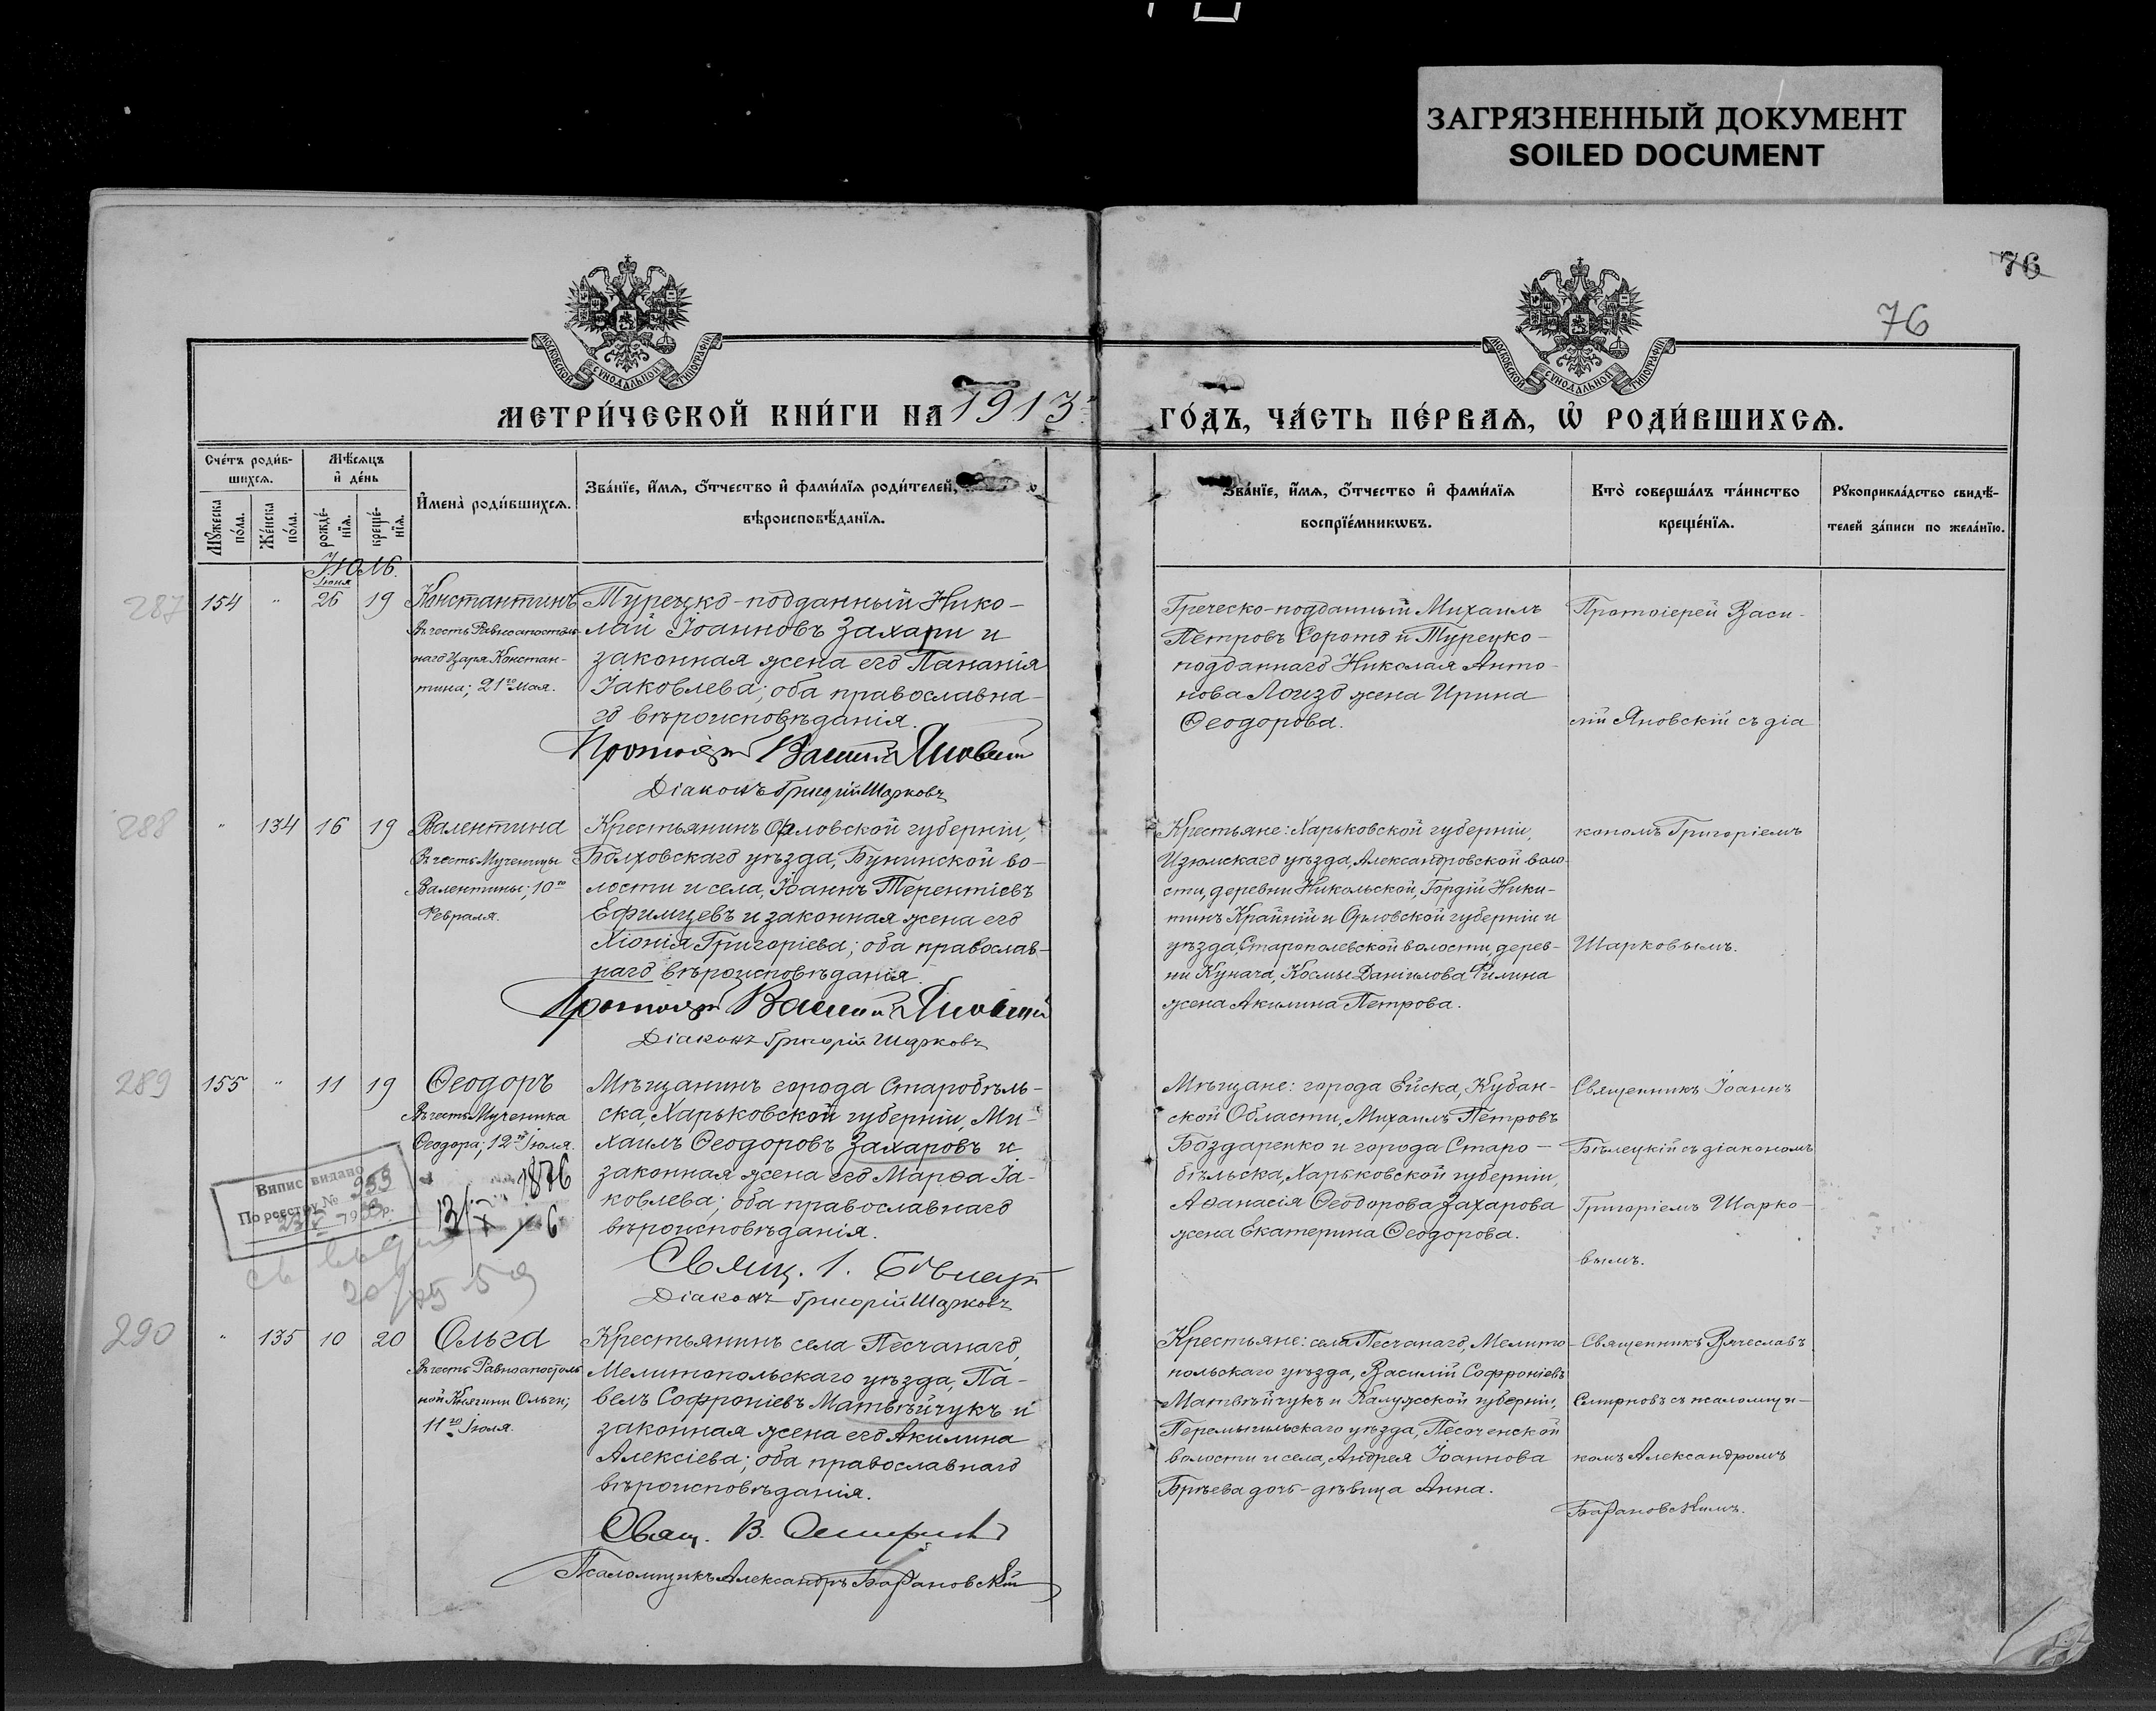 ЗАГРЯЗНЕННЫЙ ДОКУМЕНТ
SOILED DOCUMENT
76
76
МОСКОВСКОЙ СѴНОДАЛЬНОЙ ТИПОГРАФІИ
МОСКОВСКОЙ СѴНОДАЛЬНОЙ ТИПОГРАФІИ
МЕТРИ́ЧЕСКОЙ КНИ́ГИ НА 1913
ГО́ДЪ, ЧА́СТЬ ПЕ́РВАѦ, Ѡ҆ РОДИ́ВШИХСѦ.
Сче́тъ роди́в-
шихсѧ.
Мѣ́сѧцъ
и҆ де́нь
Мꙋ́жеска
по́ла.
Же́нска
по́ла.
рожде́-
нїѧ.
креще́-
нїѧ.
И҆мена̀ роди́вшихсѧ.
Зва́нїе, и҆́мѧ, ѻ҆́тчество и҆ фами́лїѧ роди́телей,
вѣроисповѣ́данїѧ.
Зва́нїе, и҆́мѧ, ѻ҆́тчество и҆ фами́лїѧ
воспрїе́мникѡвъ.
Кто̀ соверша́лъ та́инство
креще́нїѧ.
Рꙋкоприкла́дство свидѣ́-
телей за́писи по жела́нїю.
Іюль.
Іюня
287 154 " 26 19 Константинъ
Въ честь Равноапостоль-
наго Царя Констан-
тина; 21го Мая.
Турецко-подданный Нико-
лай Іоанновъ Захари и
законная жена его Панагія
Іаковлева; оба православна-
го вѣроисповѣданія.
Протоіерей Василій Яновскій
Діаконъ Григорій Шарковъ
Греческо-подданный Михаилъ
Петровъ Сорото и Турецко-
подданнаго Николая Анто-
нова Логизо жена Ирина
Ѳеодорова.
Протоіерей Васи-
лій Яновскій съ діа
288 " 134 16 19 Валентина
Въ честь Мученицы
Валентины; 10го
Февраля.
Крестьянинъ Орловской губерніи,
Болховскаго уѣзда, Бунинской во-
лости и села, Іоаннъ Терентіевъ
Ефимцевъ и законная жена его
Хіонія Григоріева; оба православ-
наго вѣроисповѣданія.
Протоіерей Василій Яновскій
Діаконъ Григорій Шарковъ
Крестьяне: Харьковской губерніи,
Изюмскаго уѣзда, Александровской воло-
сти, деревни Никольской, Гордій Ники-
тинъ Крайній и Орловской губерніи и
уѣзда, Старополевской волости, дерев-
ни Кунача, Космы Даніилова Филина
жена Акилина Петрова.
кономъ Григоріемъ
Шарковымъ.
289 155 " 11 19 Ѳеодоръ
Въ честь Мученика
Ѳеодора; 12го Іюля.
Мѣщанинъ города Старобѣль-
ска, Харьковской губерніи, Ми-
хаилъ Ѳеодоровъ Захаровъ и
законная жена его Марѳа Іа-
ковлева; оба православнаго
вѣроисповѣданія.
Свящ. І. Бѣлецкій
Діаконъ Григорій Шарковъ
Випис видано
По реєстру № 955
Мѣщане: города Ейска, Кубан-
ской Области, Михаилъ Петровъ
Боздаренко и города Старо-
бѣльска, Харьковской губерніи,
Аѳанасія Ѳеодорова Захарова
жена Екатерина Ѳеодорова.
Священникъ Іоаннъ
Бѣлецкій съ діакономъ
Григоріемъ Шарко-
вымъ.
290 " 135 10 20 Ольга
Въ честь Равноапостоль
ной Княгини Ольги;
11го Іюля.
Крестьянинъ села Песчанаго,
Мелитопольскаго уѣзда, Па-
велъ Софроніевъ Матвѣйчукъ и
законная жена его Акилина
Алексіева; оба православнаго
вѣроисповѣданія.
Свящ. В. Смирновъ
Псаломщикъ Александръ Барановскій
Крестьяне: села Песчанаго, Мелито-
польскаго уѣзда, Василій Софроніевъ
Матвѣйчукъ и Калужской губерніи,
Перемышльскаго уѣзда, Песоченской
волости и села, Андрея Іоаннова
Брѣева дочь-дѣвица Анна.
Священникъ Вячеславъ
Смирновъ съ псаломщи-
комъ Александромъ
Барановскимъ.